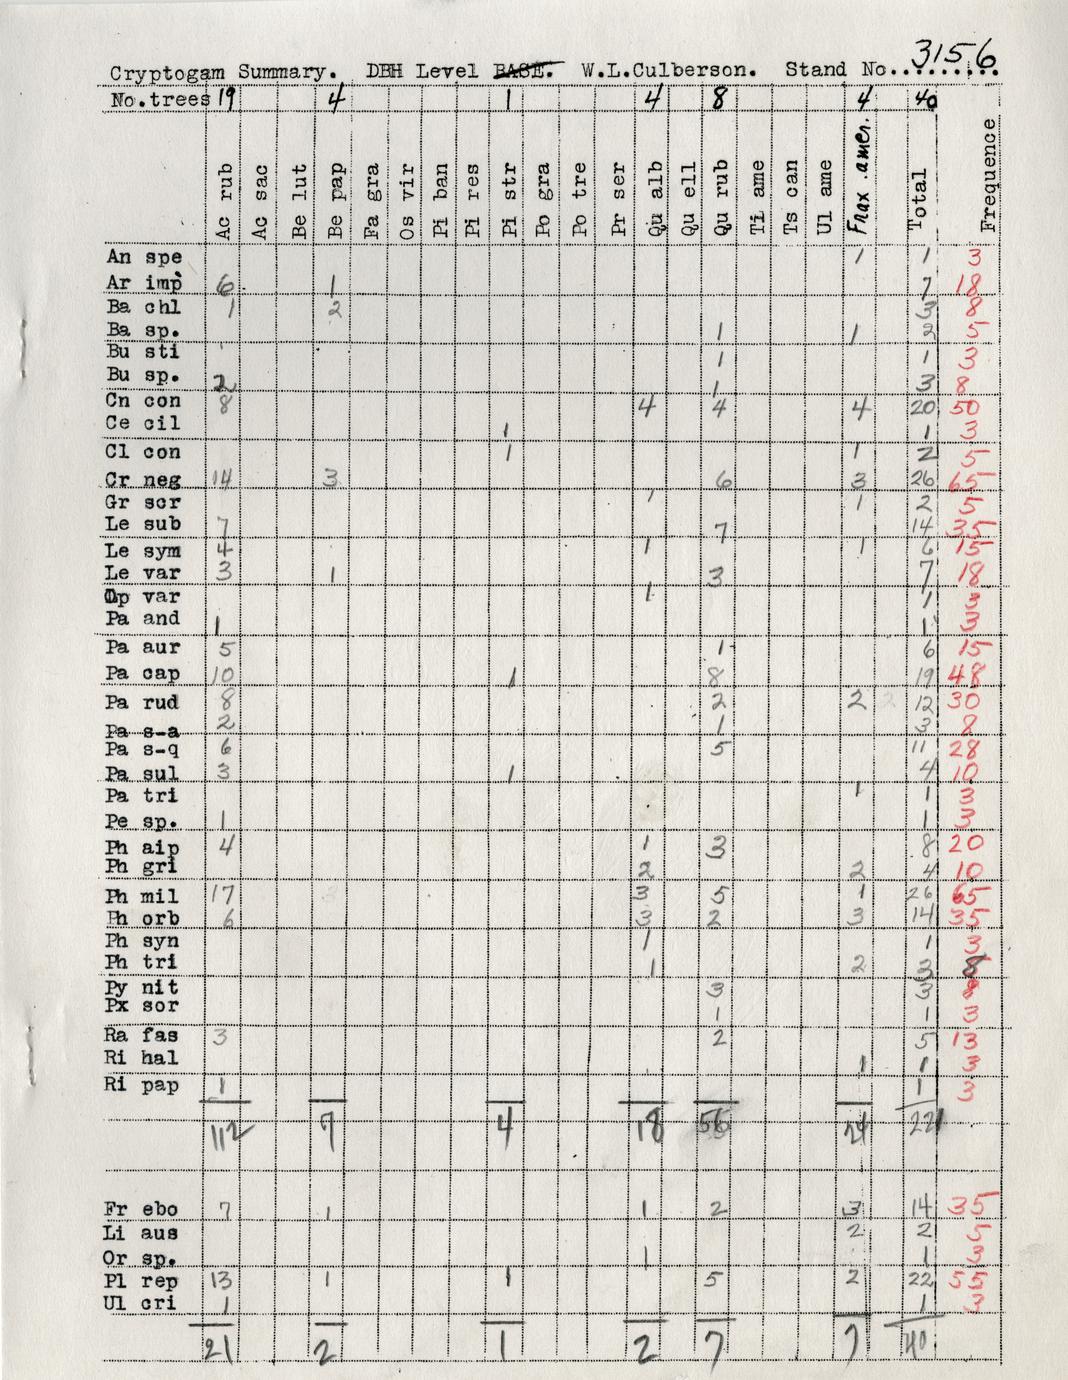 3156
Cryptogam Summary. DBH Level BASE. W.L.Culberson. Stand No..........
No.trees 19 4 1 4 8 4 40
Ac rub Ac sac Be lut Be pap Fa gra Os vir Pi ban Pi res Pi str Po gra Po tre Pr ser Qu alb Qu ell Qu rub Ti ame Ts can Ul ame Frax. amer. Total Frequence
An spe 1 1 3
Ar imp 6 1 7 18
Ba chl 1 2 3 8
Ba sp. 1 1 2 5
Bu sti 1 1 3
Bu sp. 2 1 3 8
Cn con 8 4 4 4 20 50
Ce cil 1 1 3
Cl con 1 1 2 5
Cr neg 14 3 6 3 26 65
Gr scr 1 1 2 5
Le sub 7 7 14 35
Le sym 4 1 1 6 15
Le var 3 1 3 7 18
Op var 1 1 3
Pa and 1 1 3
Pa aur 5 1 6 15
Pa cap 10 1 8 19 48
Pa rud 8 2 2 12 30
Pa s-a 2 1 3 8
Pa s-q 6 5 11 28
Pa sul 3 1 4 10
Pa tri 1 1 3
Pe sp. 1 1 3
Ph aip 4 1 3 8 20
Ph gri 2 2 4 10
Ph mil 17 3 5 1 26 65
Ph orb 6 3 2 3 14 35
Ph syn 1 1 3
Ph tri 1 2 3 8
Py nit 3 3
Px sor 1 1 3
Ra fas 3 2 5 13
Ri hal 1 1 3
Ri pap 1 1 3
112 7 4 18 56 24 221
Fr ebo 7 1 1 2 3 14 35
Li aus 2 2 5
Or sp. 1 1 3
Pl rep 13 1 1 5 2 22 55
Ul cri 1 1 3
21 2 1 2 7 7 40